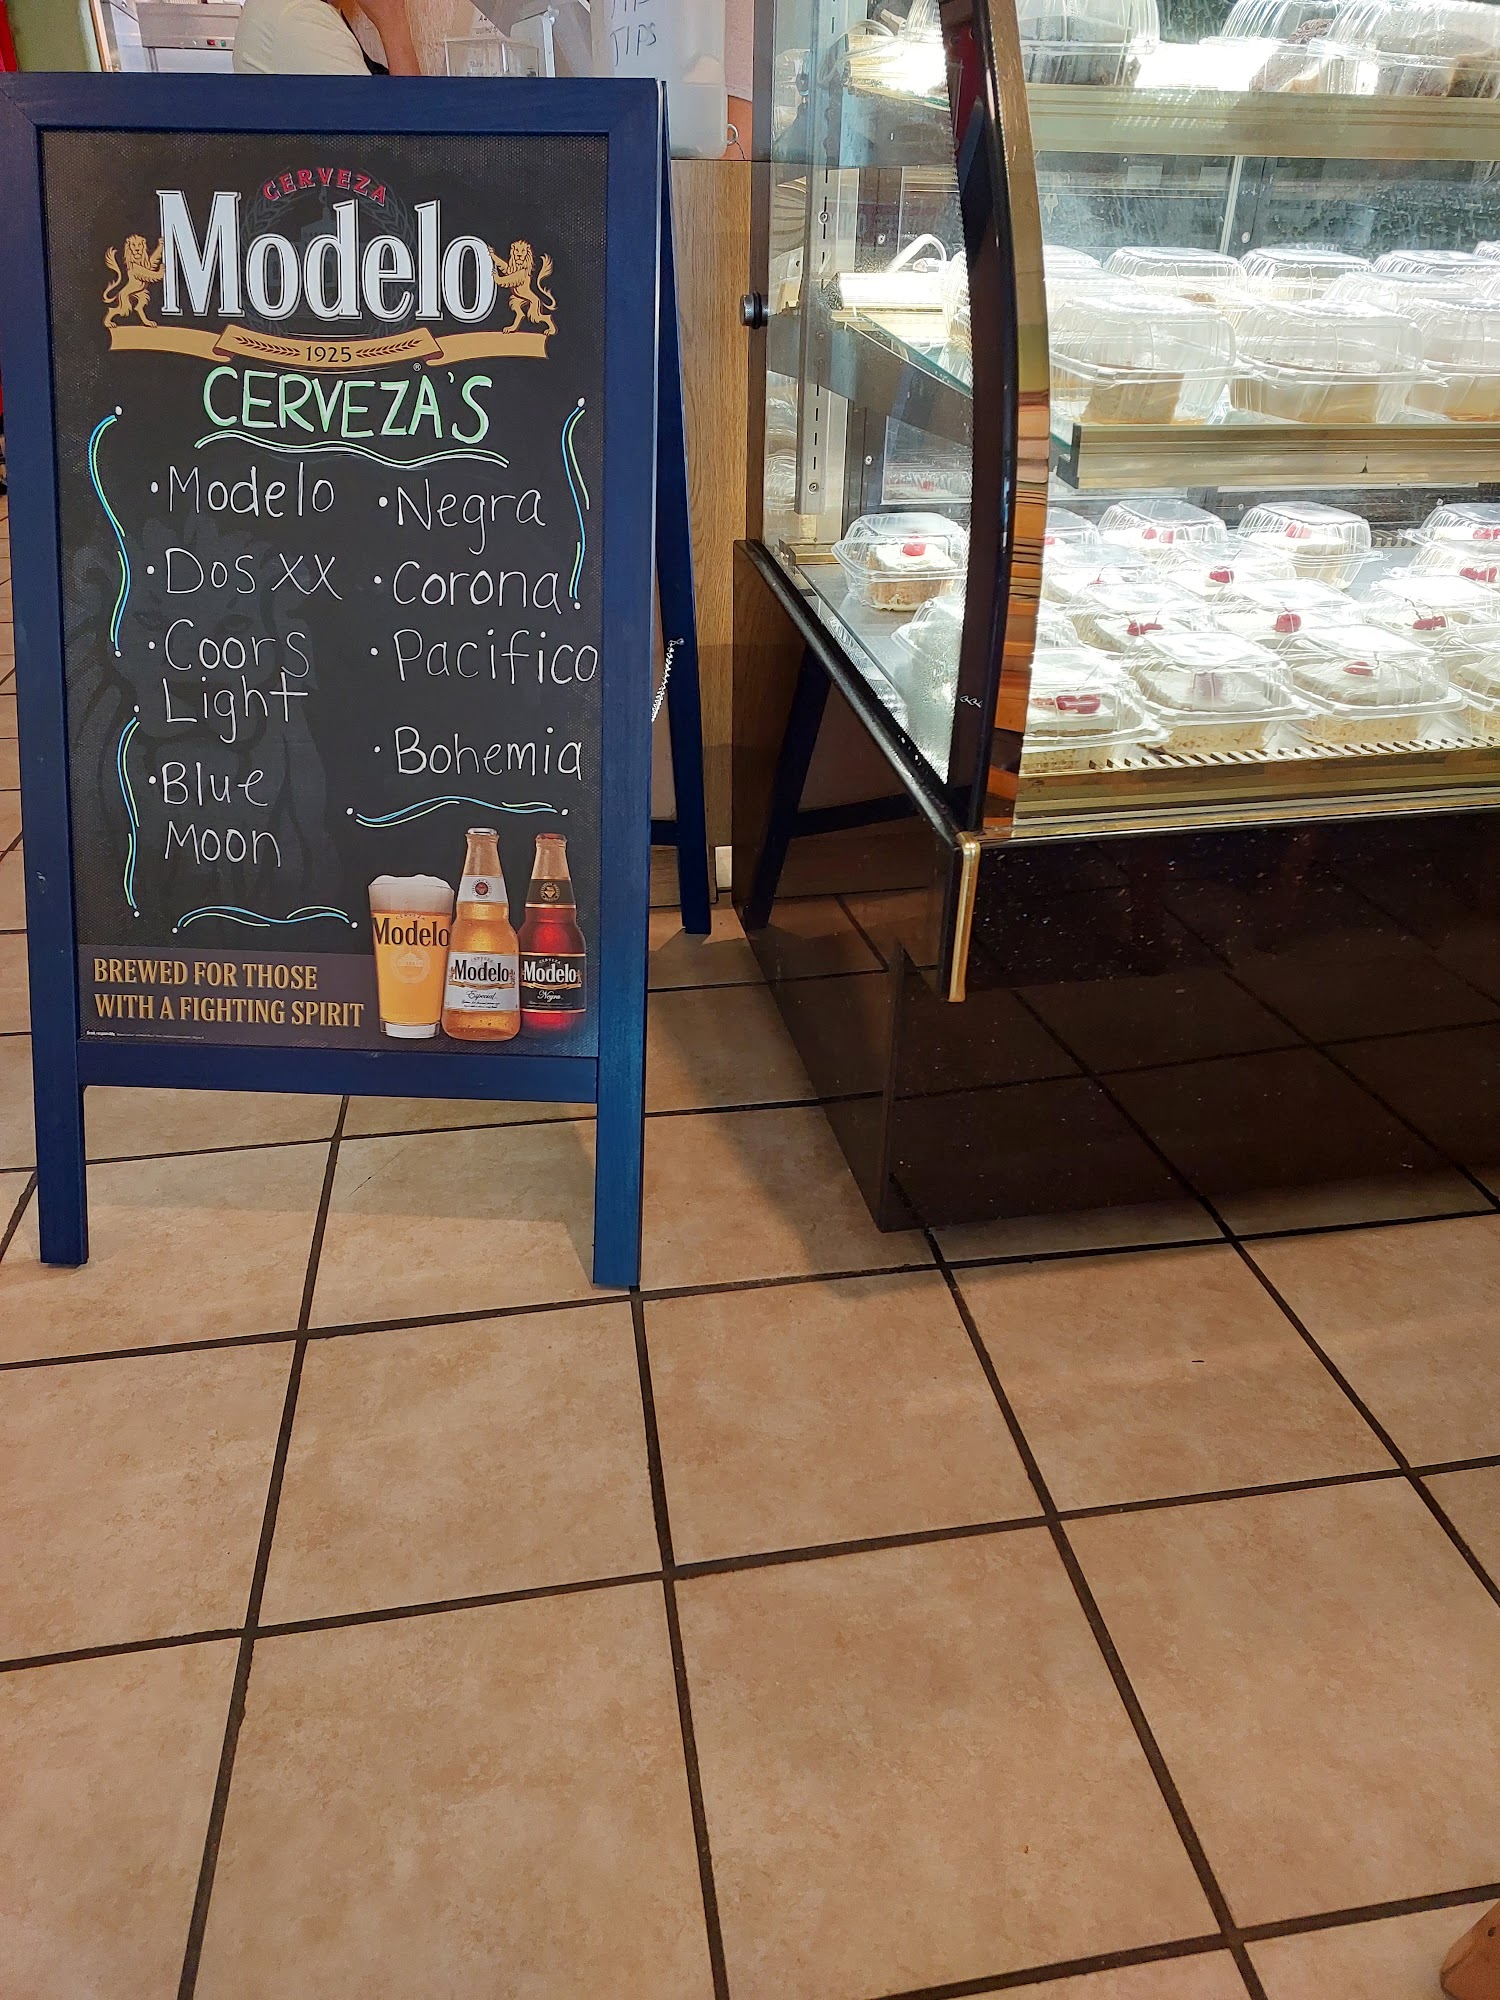 TIPS
CERVEZA
Modelo
1925
®
CERVEZA'S
· Modelo
· Dos XX
· Coors
Light
· Blue
Moon
· Negra
· Corona
· Pacifico
· Bohemia
BREWED FOR THOSE
WITH A FIGHTING SPIRIT
Modelo
Modelo
Especial
Modelo
Negra